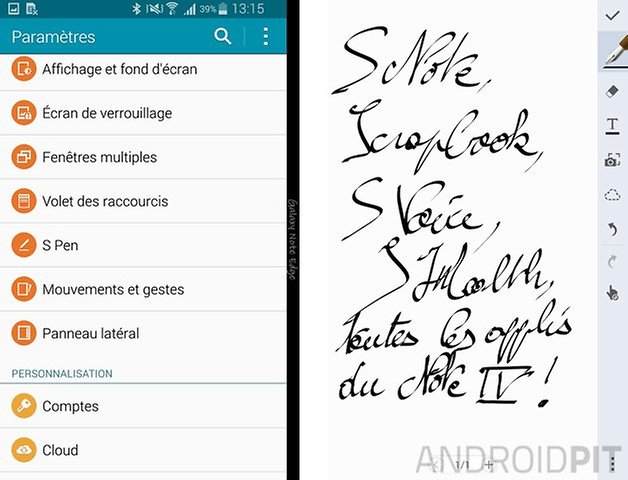 39% 13:15
Paramètres
Affichage et fond d'écran
Écran de verrouillage
Fenêtres multiples
Volet des raccourcis
S Pen
Mouvements et gestes
Panneau latéral
PERSONNALISATION
Comptes
Cloud
Galaxy Note Edge
S Note,
Scrapbook,
S Voice,
S Health,
toutes les applis
du Note IV !
T
1/1
ANDROIDPIT